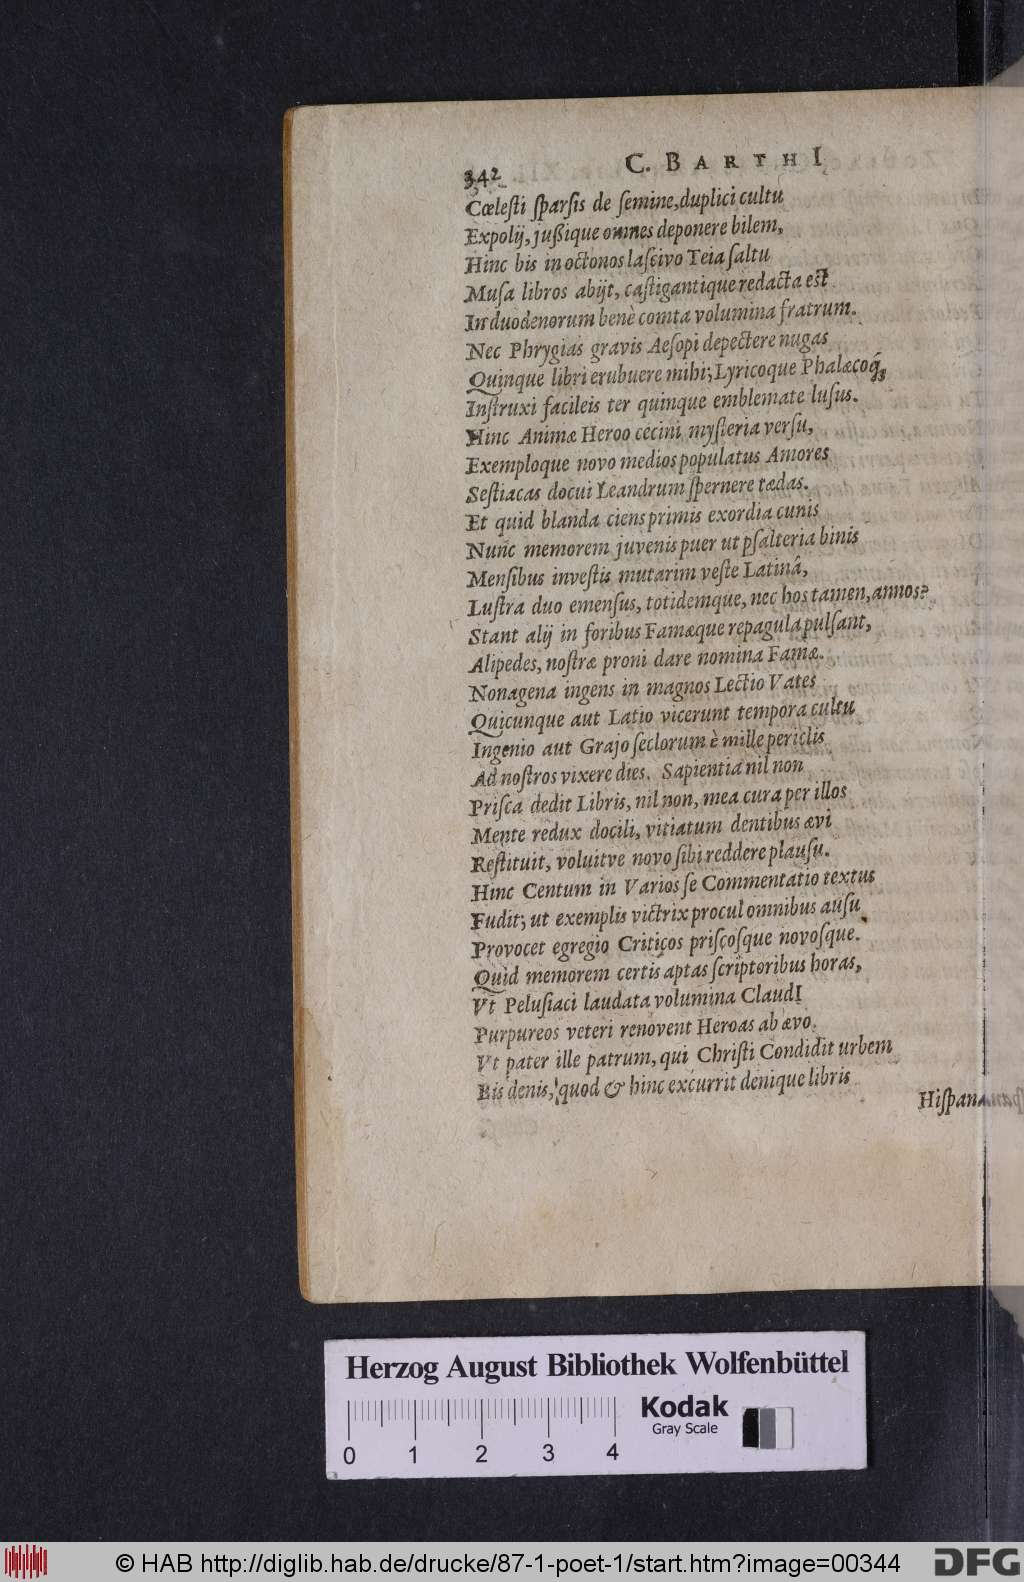 342
C. BARTHI
Cœlesti sparsis de semine, duplici cultu
Expolij, jußique omnes deponere bilem,
Hinc bis in octonos lascivo Teia saltu
Musa libros abijt, castigantique redacta est
In duodenorum benè comta volumina fratrum.
Nec Phrygias gravis Aesopi depectere nugas
Quinque libri erubuere mihi; Lyricoque Phalæcoq́;
Instruxi facileis ter quinque emblemate lusus.
Hinc Animæ Heroo cecini mysteria versu,
Exemploque novo medios populatus Amores
Sestiacas docui Leandrum spernere tædas.
Et quid blanda ciens primis exordia cunis
Nunc memorem juvenis puer ut psalteria binis
Mensibus investis mutarim veste Latinâ,
Lustra duo emensus, totidemque, nec hos tamen, annos?
Stant alij in foribus Famæque repagula pulsant,
Alipedes, nostræ proni dare nomina Famæ.
Nonagena ingens in magnos Lectio Vates
Quicunque aut Latio vicerunt tempora cultu
Ingenio aut Grajo seclorum è mille periclis
Ad nostros vixere dies. Sapientia nil non
Prisca dedit Libris, nil non, mea cura per illos
Mente redux docili, vitiatum dentibus ævi
Restituit, voluitve novo sibi reddere plausu.
Hinc Centum in Varios se Commentatio textus
Fudit; ut exemplis victrix procul omnibus ausu
Provocet egregio Criticos priscosque novosque.
Quid memorem certis aptas scriptoribus horas,
Vt Pelusiaci laudata volumina ClaudI
Purpureos veteri renovent Heroas ab ævo.
Vt pater ille patrum, qui Christi Condidit urbem
Bis denis, quod & hinc excurrit denique libris
Hispana
Herzog August Bibliothek Wolfenbüttel
Kodak
Gray Scale
0 1 2 3 4
© HAB http://diglib.hab.de/drucke/87-1-poet-1/start.htm?image=00344
DFG